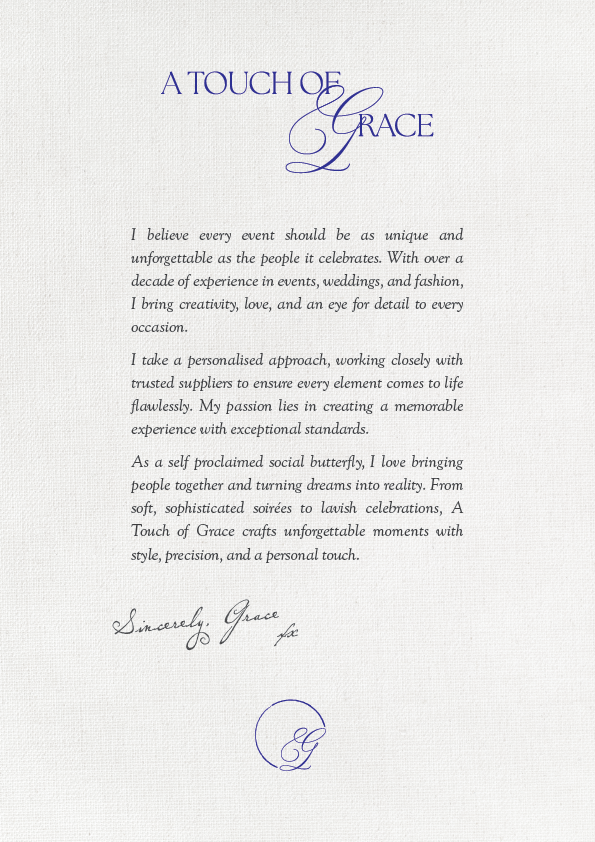 A TOUCH OF
GRACE
I believe every event should be as unique and
unforgettable as the people it celebrates. With over a
decade of experience in events, weddings, and fashion,
I bring creativity, love, and an eye for detail to every
occasion.
I take a personalised approach, working closely with
trusted suppliers to ensure every element comes to life
flawlessly. My passion lies in creating a memorable
experience with exceptional standards.
As a self proclaimed social butterfly, I love bringing
people together and turning dreams into reality. From
soft, sophisticated soirées to lavish celebrations, A
Touch of Grace crafts unforgettable moments with
style, precision, and a personal touch.
Sincerely, Grace
G